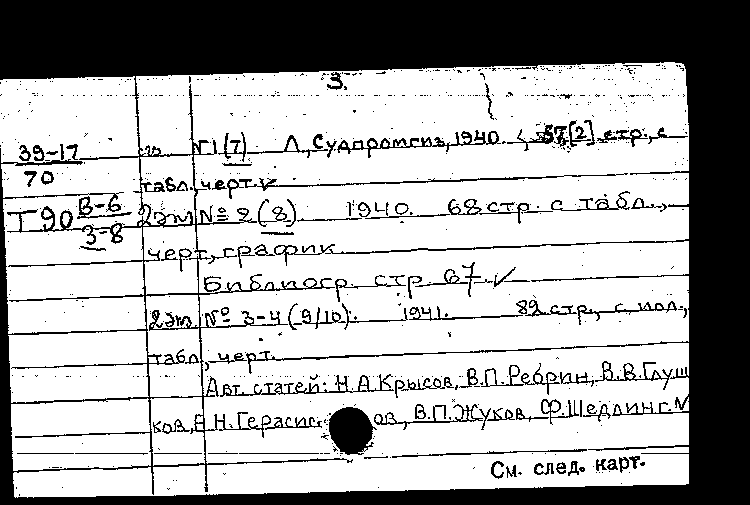 3.
39-17 2эк №1(7). Л., Судпромгиз, 1940. 57[2] стр., с
70 табл., черт.✓
Т 90 В-6 2эк №2 (8). 1940. 68 стр. с табл.,
3-8 черт., график.
Библиогр. стр. 67.✓
2эк №3-4 (9/10). 1941. 82 стр., с илл.,
табл., черт.
Авт. статей: Н.А.Крысов, В.П.Ребрин, В.В.Глуш
ков, Н.Герасис ов, В.П.Жуков, Ф.Шедлинг.
См. след. карт.